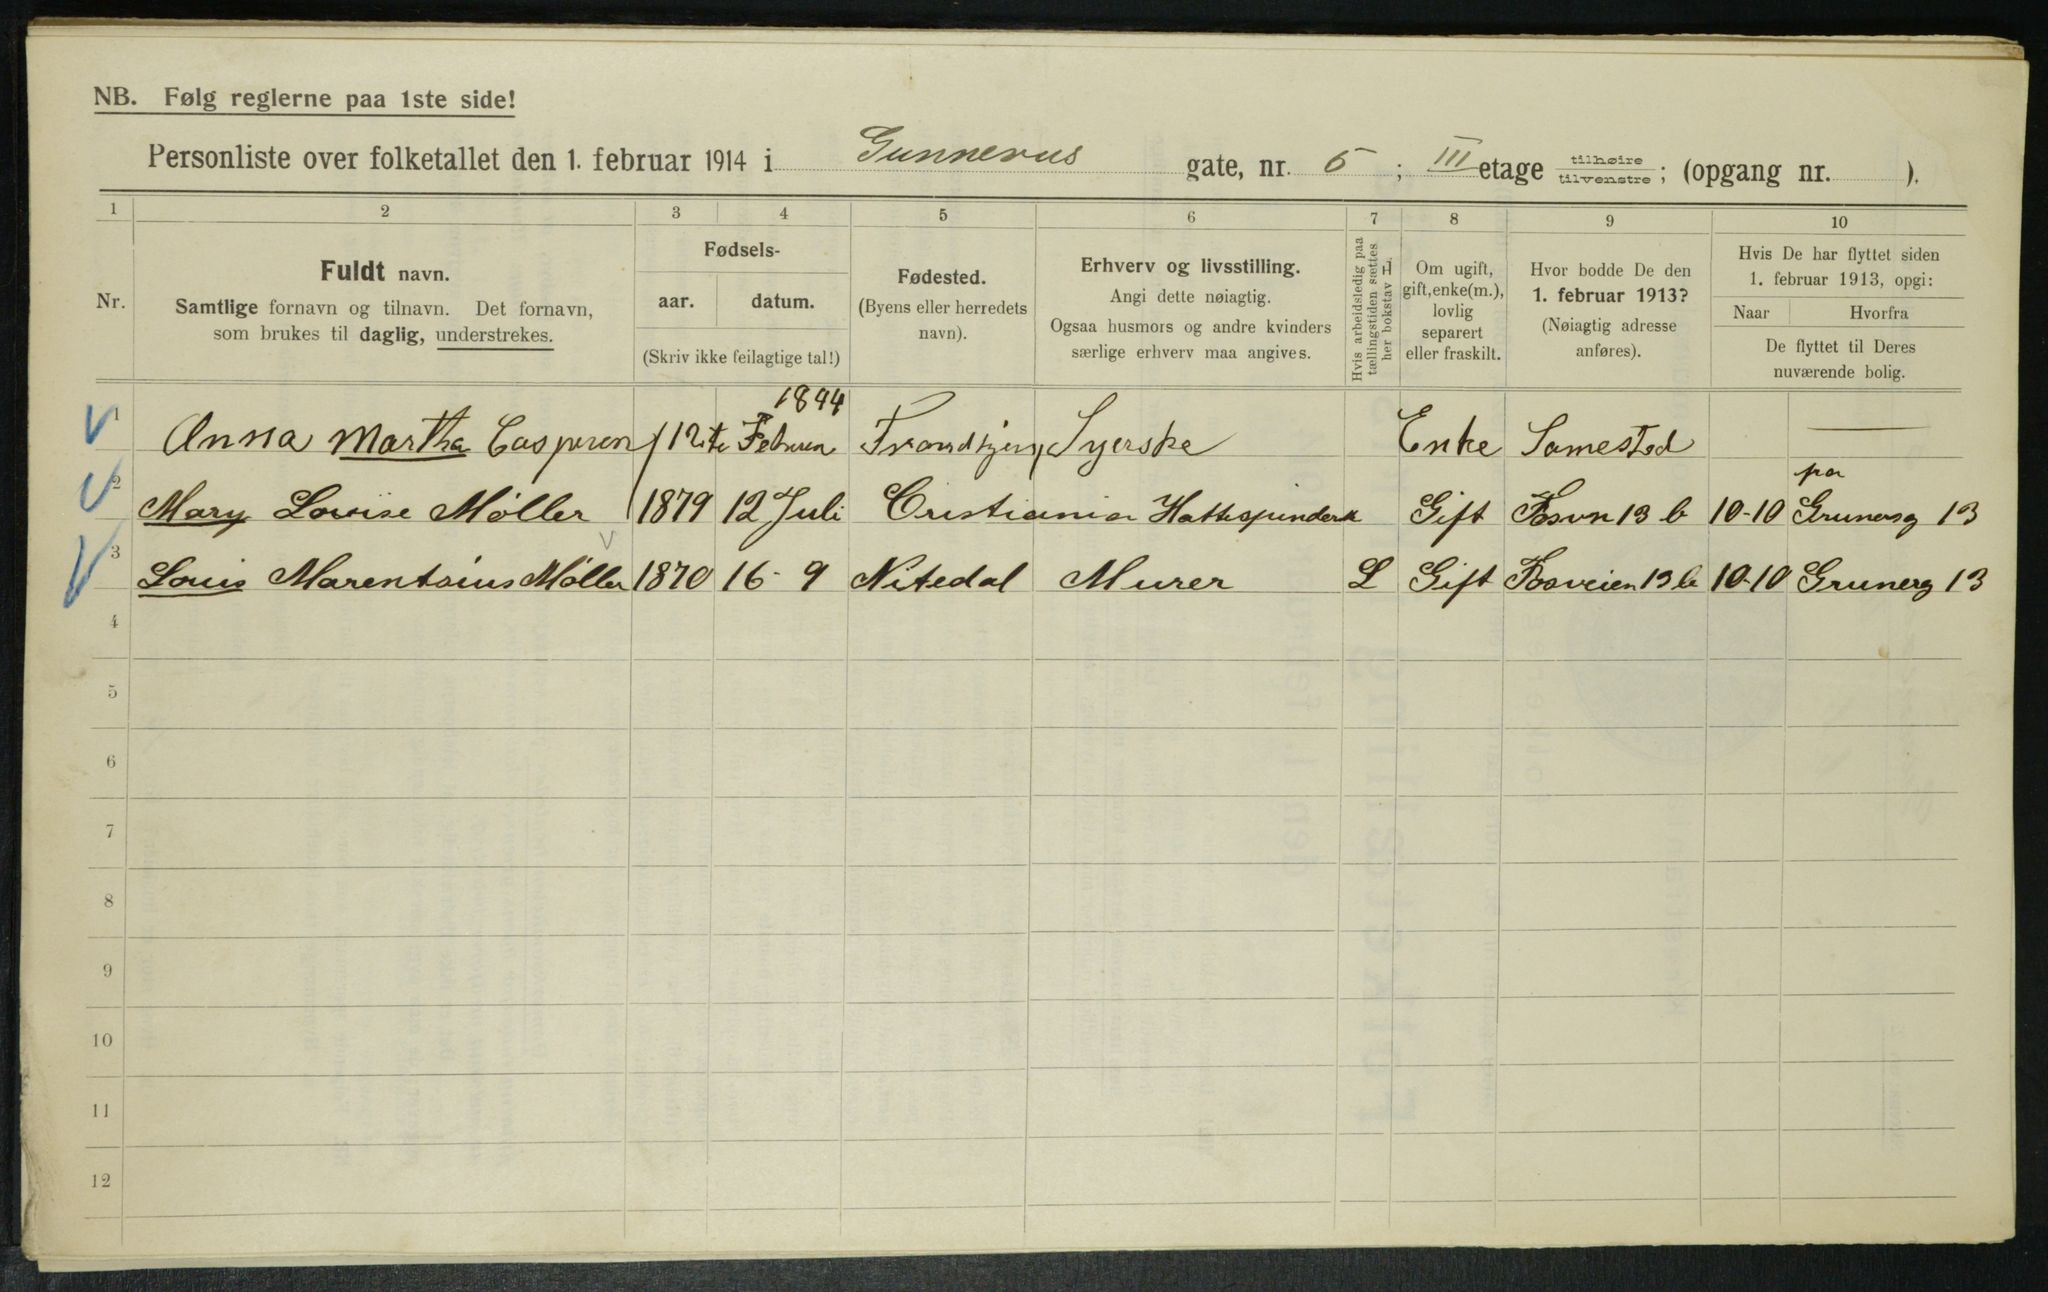 NB. Følg reglerne paa 1ste side!
Personliste over folketallet den 1. februar 1914 i Gunnerus gate, nr. 5 ; III etage tilhøire tilvenstre ; (opgang nr. ).
1 2 3 4 5 6 7 8 9 10
Nr.
Fuldt navn.
Samtlige fornavn og tilnavn. Det fornavn,
som brukes til daglig, understrekes.
Fødsels-
aar. datum.
(Skriv ikke feilagtige tal!)
Fødested.
(Byens eller herredets
navn).
Erhverv og livsstilling.
Angi dette nøiagtig.
Ogsaa husmors og andre kvinders
særlige erhverv maa angives.
Hvis arbeidsledig paa
tællingstiden sættes
her bokstav L.
Om ugift,
gift, enke(m.),
lovlig
separert
eller fraskilt.
Hvor bodde De den
1. februar 1913?
(Nøiagtig adresse
anføres).
Hvis De har flyttet siden
1. februar 1913, opgi:
Naar Hvorfra
De flyttet til Deres
nuværende bolig.
1844
1 Anna Martha Caspersen 12te Februar Trondhjem Syerske Enke Samested —
pa
2 Mary Lovise Møller 1879 12 Juli Cristiania Hattespinderk Gift Fosvn 13 b 10-10 Grunersg 13
3 Louis Marentsius Møller 1870 16-9 Nitedal Murer L Gift Fosveien 13 b 10-10 Grunerg 13
4
5
6
7
8
9
10
11
12